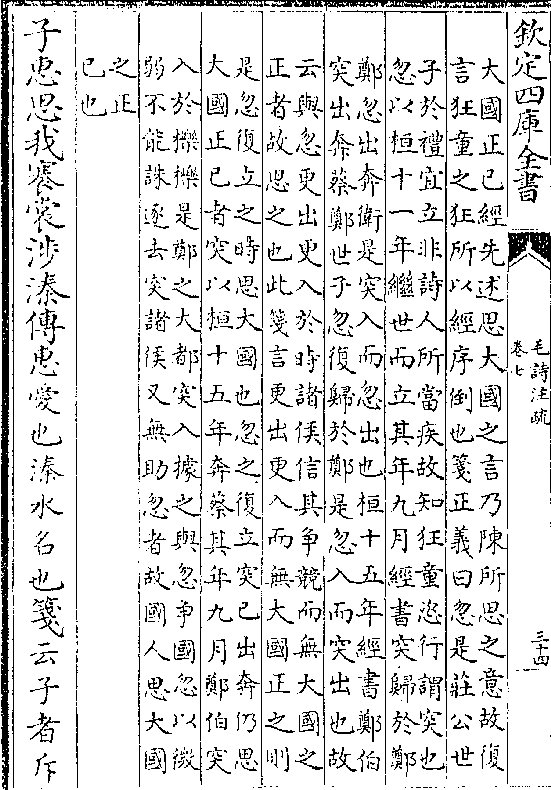 欽定四庫全書
毛詩注疏
卷七
三十四
大國正已經先述思大國之言乃陳所思之意故復
言狂童之狂所以經序倒也箋正義曰忽是莊公世
子於禮宜立非詩人所當疾故知狂童恣行謂突也
忽以桓十一年繼世而立其年九月經書突歸於鄭
鄭忽出奔衛是突入而忽出也桓十五年經書鄭伯
突出奔蔡鄭世子忽復歸於鄭是忽入而突出也故
云與忽更出更入於時諸侯信其争競而無大國之
正者故思之也此箋言更出更入而無大國正之則
是忽復立之時思大國也忽之復立突已出奔仍思
大國正已者突以桓十五年奔蔡其年九月鄭伯突
入於櫟櫟是鄭之大都突入據之與忽争國忽以微
弱不能誅逐去突諸侯又無助忽者故國人思大國
之正
已也
子惠思我褰裳涉溱傳惠愛也溱水名也箋云子者斥